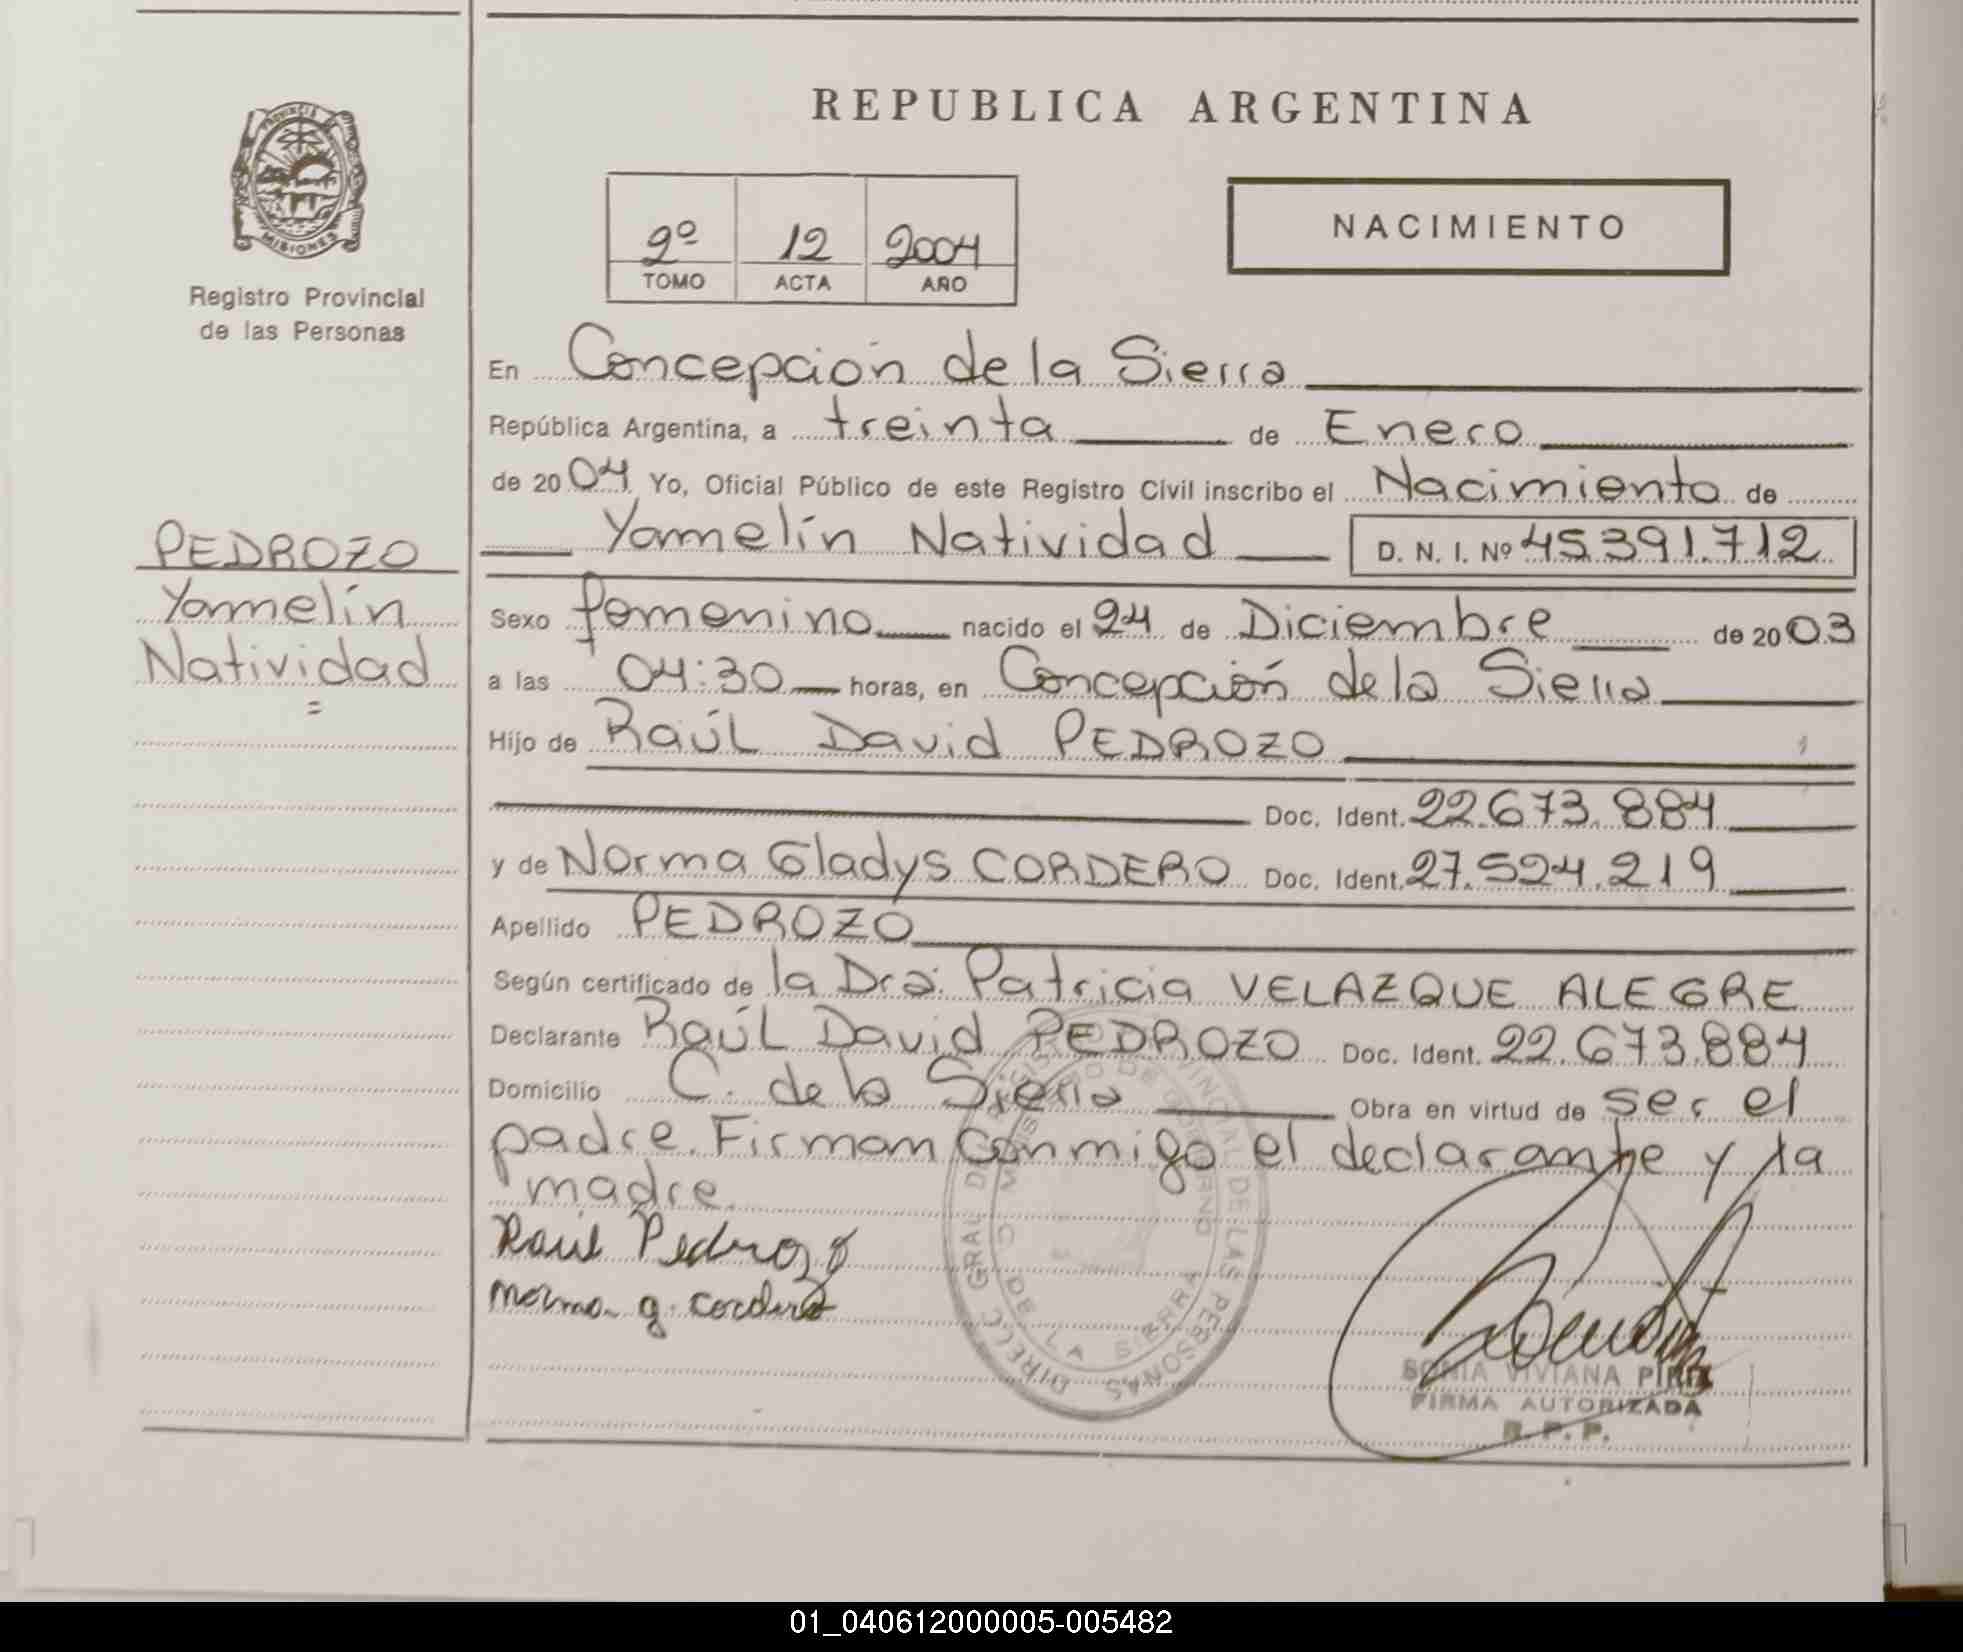 REPUBLICA ARGENTINA
PROVINCIA DE MISIONES
Registro Provincial
de las Personas
2º 12 2004
TOMO ACTA AÑO
NACIMIENTO
En Concepción de la Sierra
República Argentina, a treinta de Enero
de 2004 Yo, Oficial Público de este Registro Civil inscribo el Nacimiento de
Yamelín Natividad D. N. I. Nº 45.391.712
PEDROZO
Yamelín
Natividad
=
Sexo femenino nacido el 24 de Diciembre de 2003
a las 04:30 horas, en Concepción de la Sierra
Hijo de Raúl David PEDROZO
Doc. Ident. 22.673.884
y de Norma Gladys CORDERO Doc. Ident. 27.524.219
Apellido PEDROZO
Según certificado de la Dra. Patricia VELAZQUE ALEGRE
Declarante Raúl David PEDROZO Doc. Ident. 22.673.884
Domicilio C. de la Sierra Obra en virtud de ser el
padre. Firman conmigo el declarante y la
madre.
Raúl Pedrozo
Norma g. cordero
DIRECC GRAL DEL REGISTRO PROVINCIAL DE LAS PERSONAS
MINISTERIO DE GOBIERNO
DE LA SIERRA
SONIA VIVIANA
FIRMA AUTORIZADA
R. P. P.
01_040612000005-005482